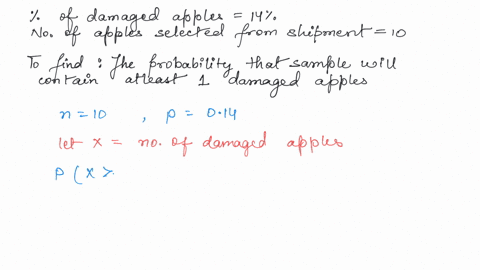 % of damaged apples = 14%.
No. of apples selected from shipment = 10
To find : The probability that sample will
contain atleast 1 damaged apples
n = 10 , p = 0.14
let x = no. of damaged apples
P ( x >